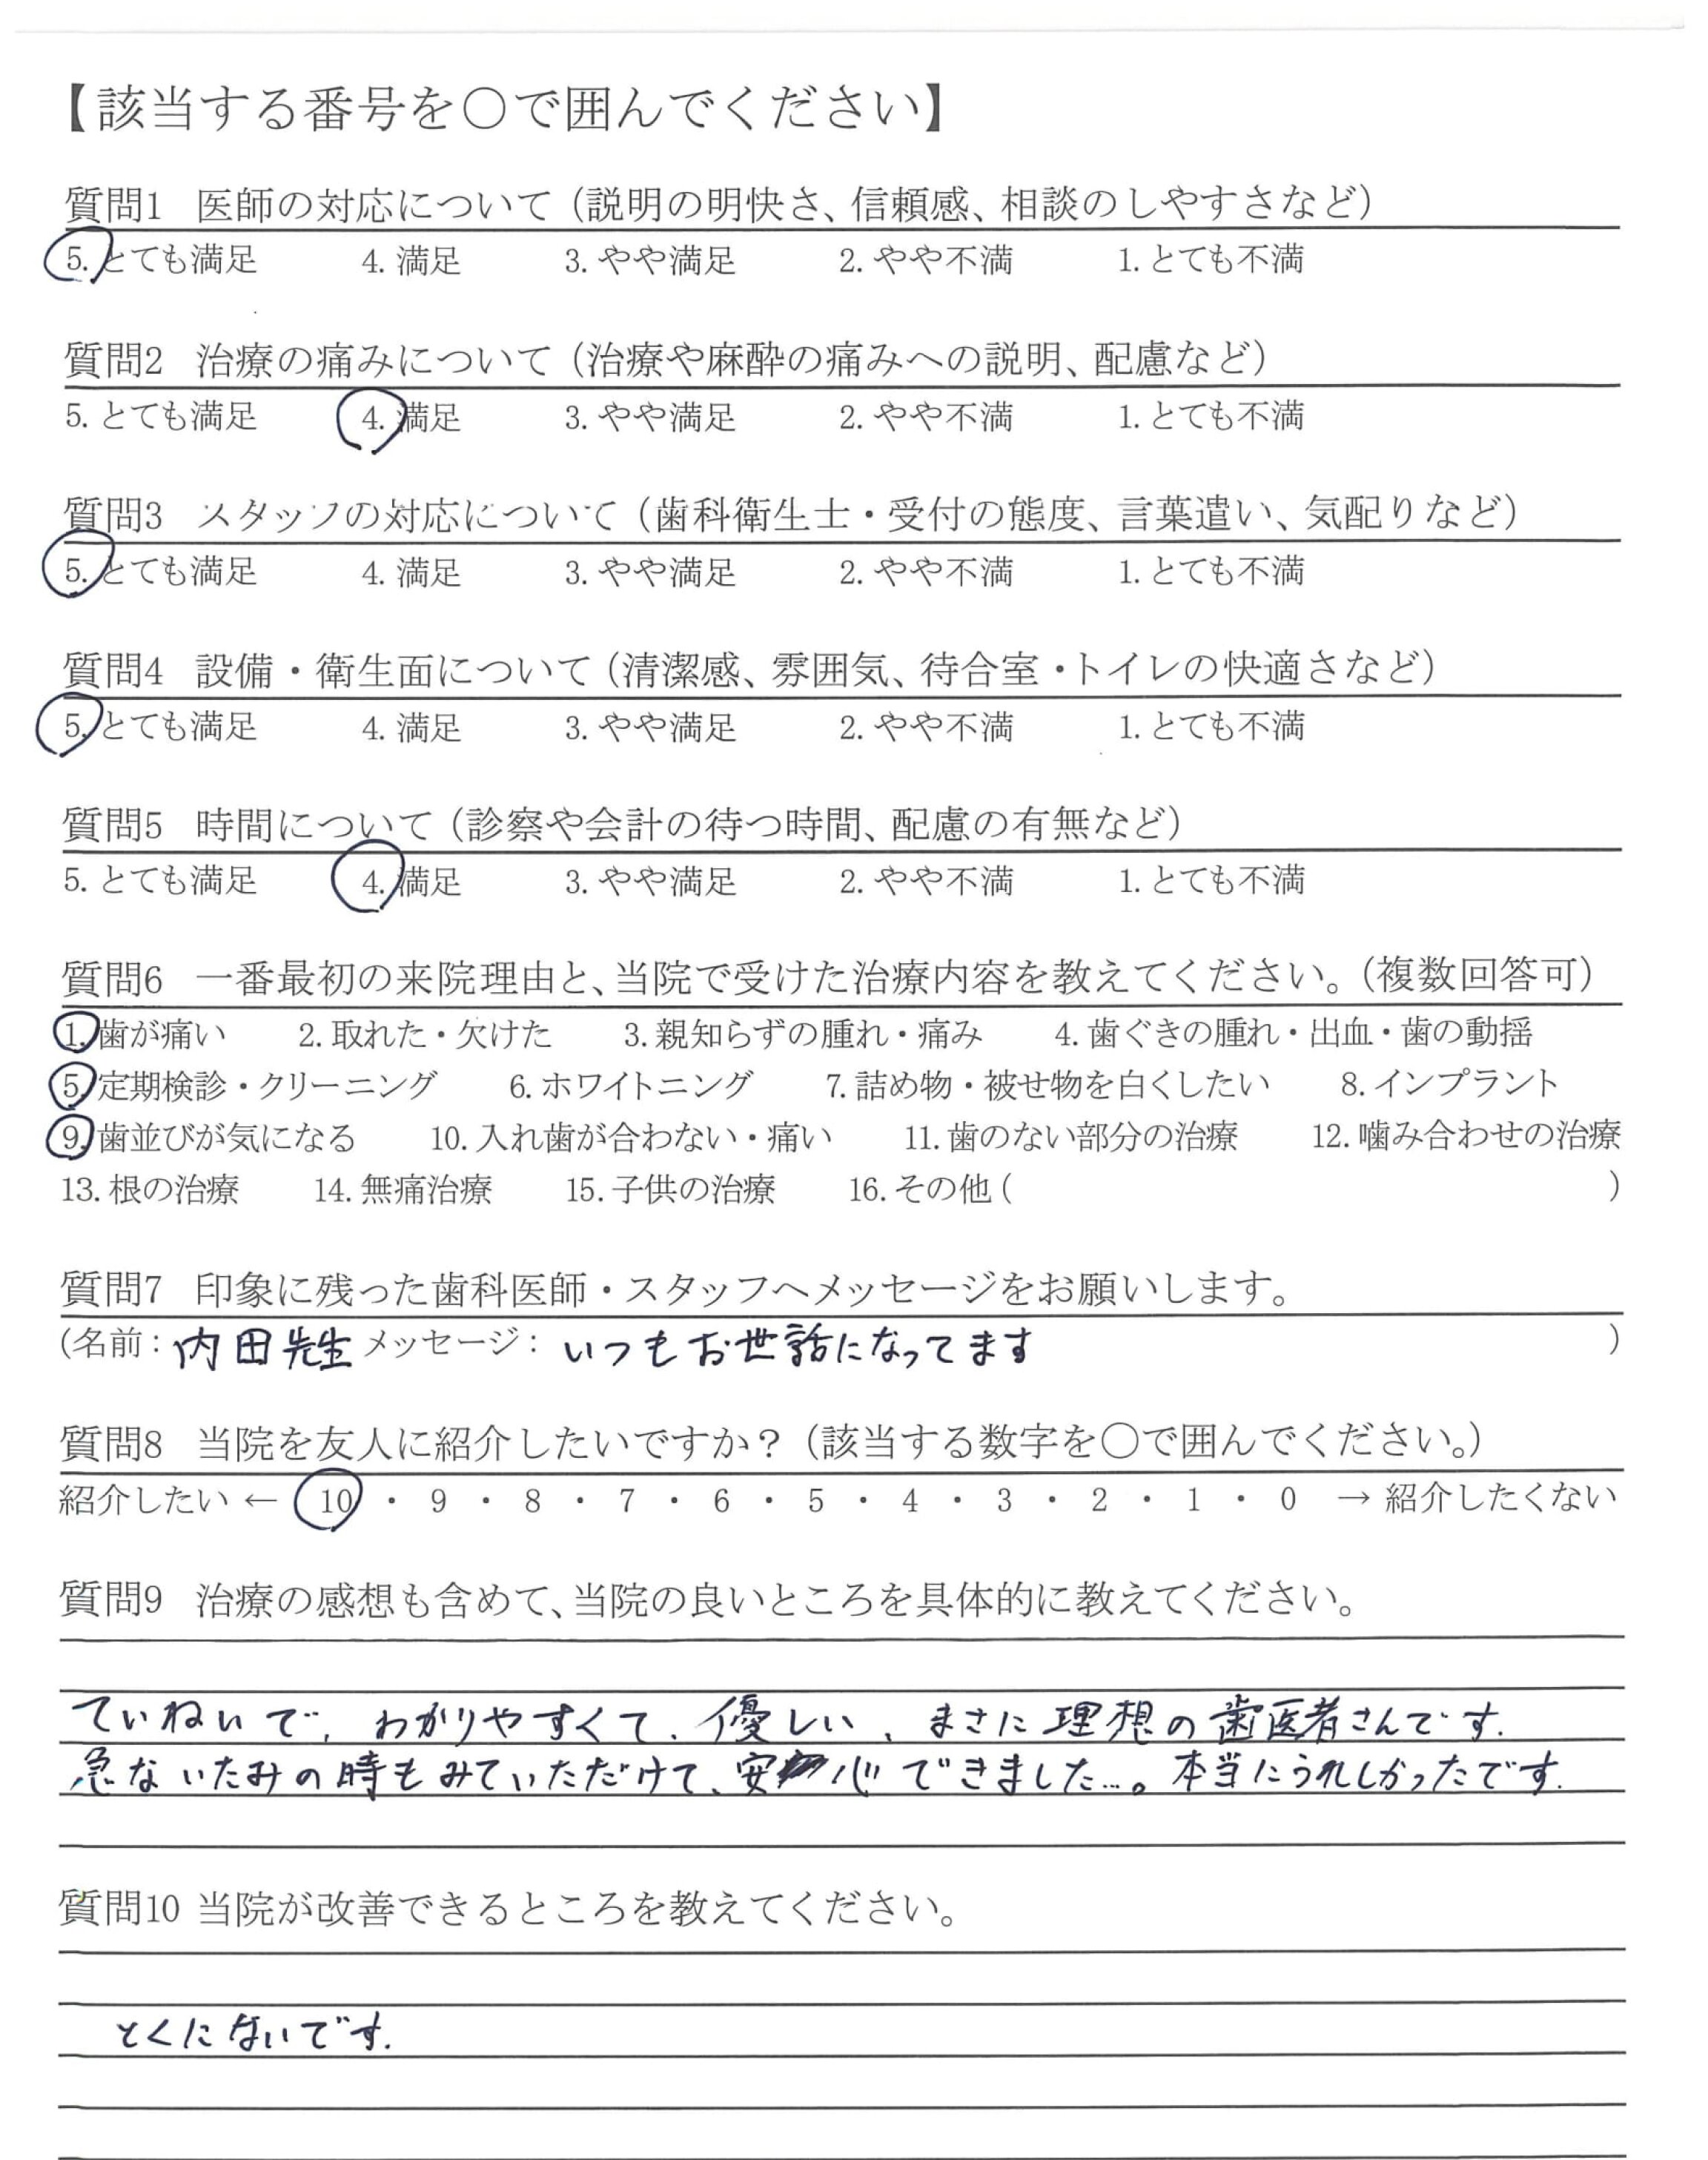 【該当する番号を○で囲んでください】
質問1 医師の対応について(説明の明快さ、信頼感、相談のしやすさなど)
5. とても満足 4. 満足 3. やや満足 2. やや不満 1. とても不満
質問2 治療の痛みについて(治療や麻酔の痛みへの説明、配慮など)
5. とても満足 4. 満足 3. やや満足 2. やや不満 1. とても不満
質問3 スタッフの対応について(歯科衛生士・受付の態度、言葉遣い、気配りなど)
5. とても満足 4. 満足 3. やや満足 2. やや不満 1. とても不満
質問4 設備・衛生面について(清潔感、雰囲気、待合室・トイレの快適さなど)
5. とても満足 4. 満足 3. やや満足 2. やや不満 1. とても不満
質問5 時間について(診察や会計の待つ時間、配慮の有無など)
5. とても満足 4. 満足 3. やや満足 2. やや不満 1. とても不満
質問6 一番最初の来院理由と、当院で受けた治療内容を教えてください。(複数回答可)
1. 歯が痛い 2. 取れた・欠けた 3. 親知らずの腫れ・痛み 4. 歯ぐきの腫れ・出血・歯の動揺
5. 定期検診・クリーニング 6. ホワイトニング 7. 詰め物・被せ物を白くしたい 8. インプラント
9. 歯並びが気になる 10. 入れ歯が合わない・痛い 11. 歯のない部分の治療 12. 噛み合わせの治療
13. 根の治療 14. 無痛治療 15. 子供の治療 16. その他( )
質問7 印象に残った歯科医師・スタッフへメッセージをお願いします。
(名前:内田先生 メッセージ: いつもお世話になってます )
質問8 当院を友人に紹介したいですか?(該当する数字を○で囲んでください。)
紹介したい ← 10 ・ 9 ・ 8 ・ 7 ・ 6 ・ 5 ・ 4 ・ 3 ・ 2 ・ 1 ・ 0 → 紹介したくない
質問9 治療の感想も含めて、当院の良いところを具体的に教えてください。
ていねいで、わかりやすくて、優しい、まさに理想の歯医者さんです.
急ないたみの時もみていただけて、安心できました…。本当にうれしかったです.
質問10 当院が改善できるところを教えてください。
とくにないです.